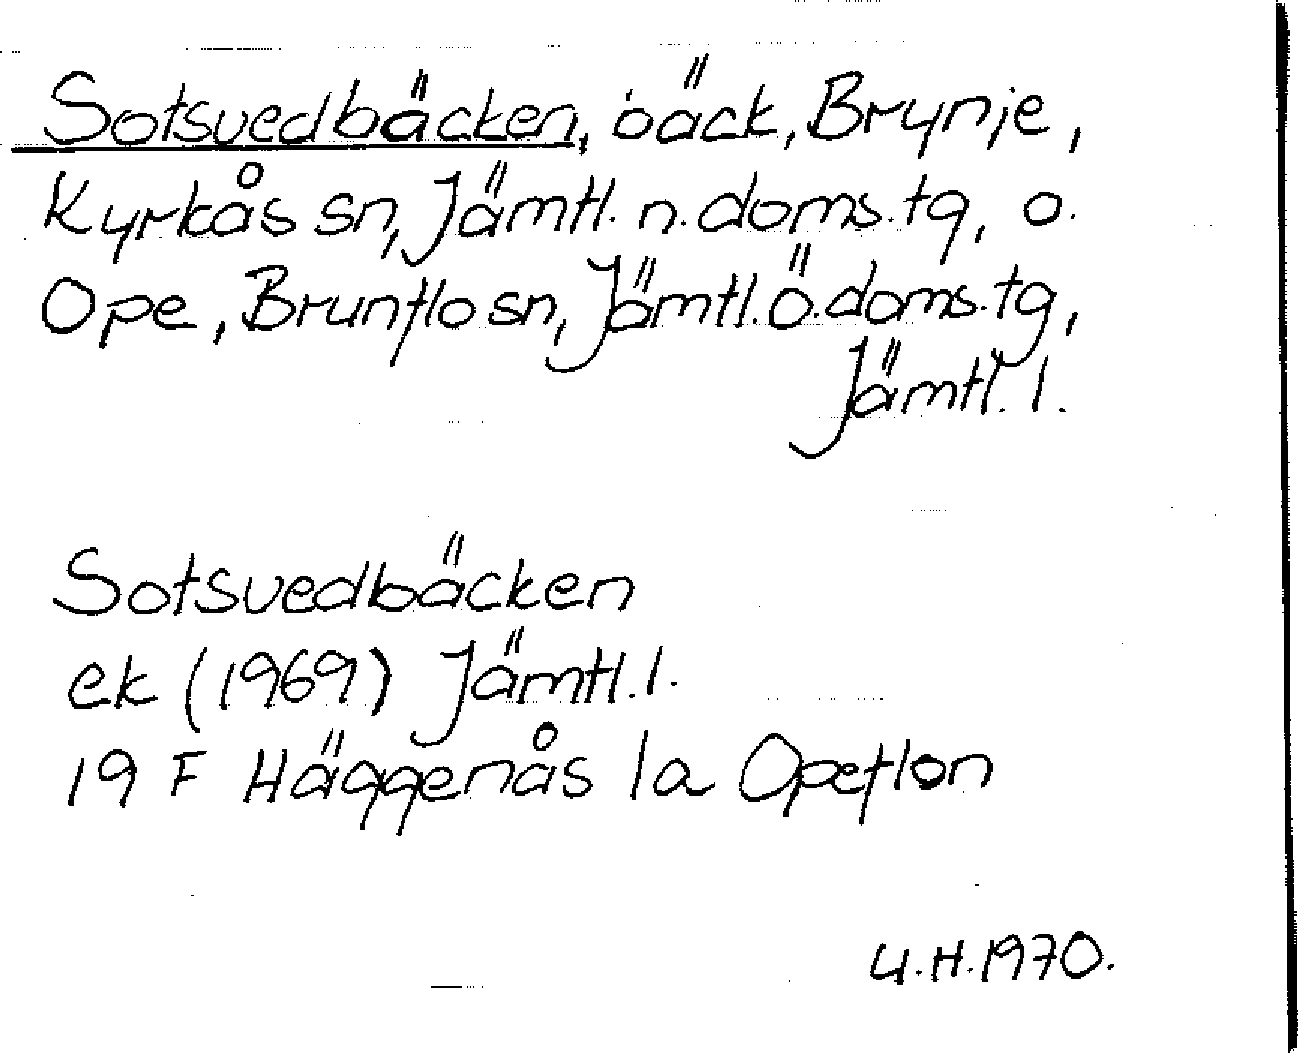 Sotsvedbäcken, bäck, Brynje,
Kyrkås sn, Jämtl. n. doms. tg, o.
Ope, Brunflo sn, Jämtl. ö. doms. tg,
Jämtl. l.
Sotsvedbäcken
ek (1969) Jämtl. l.
19 F Häggenås 1a Opeflon
U.H. 1970.